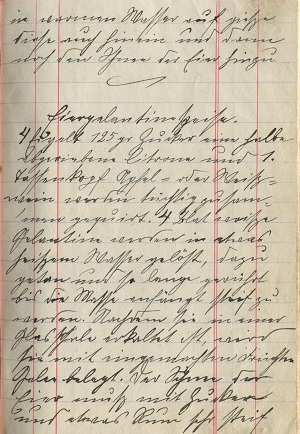 in warmem Wasser auf gieße
diese auch hinein und dann
noch den Schnee der Eier hinzu
Eiergelantinspeise.
4 Eigelb 125 gr Zucker eine halbe
abgeriebene Citrone und 1.
Tassenkopf Apfel- oder Weiß-
wein werden tüchtig zusam-
men gequirlt. 4 Blat weiße
Gelantine werden in etwas
heißem Wasser gelöst, dazu
getan und so lange gerührt
bis die Masse anfängt steif zu
werden. Nachdem sie in einer
Glasschale erkaltet ist, wird
sie mit eingemachten Früchten
belegt. Der Schnee der
Eier muß mit Zucker
und etwas Rum sehr steif